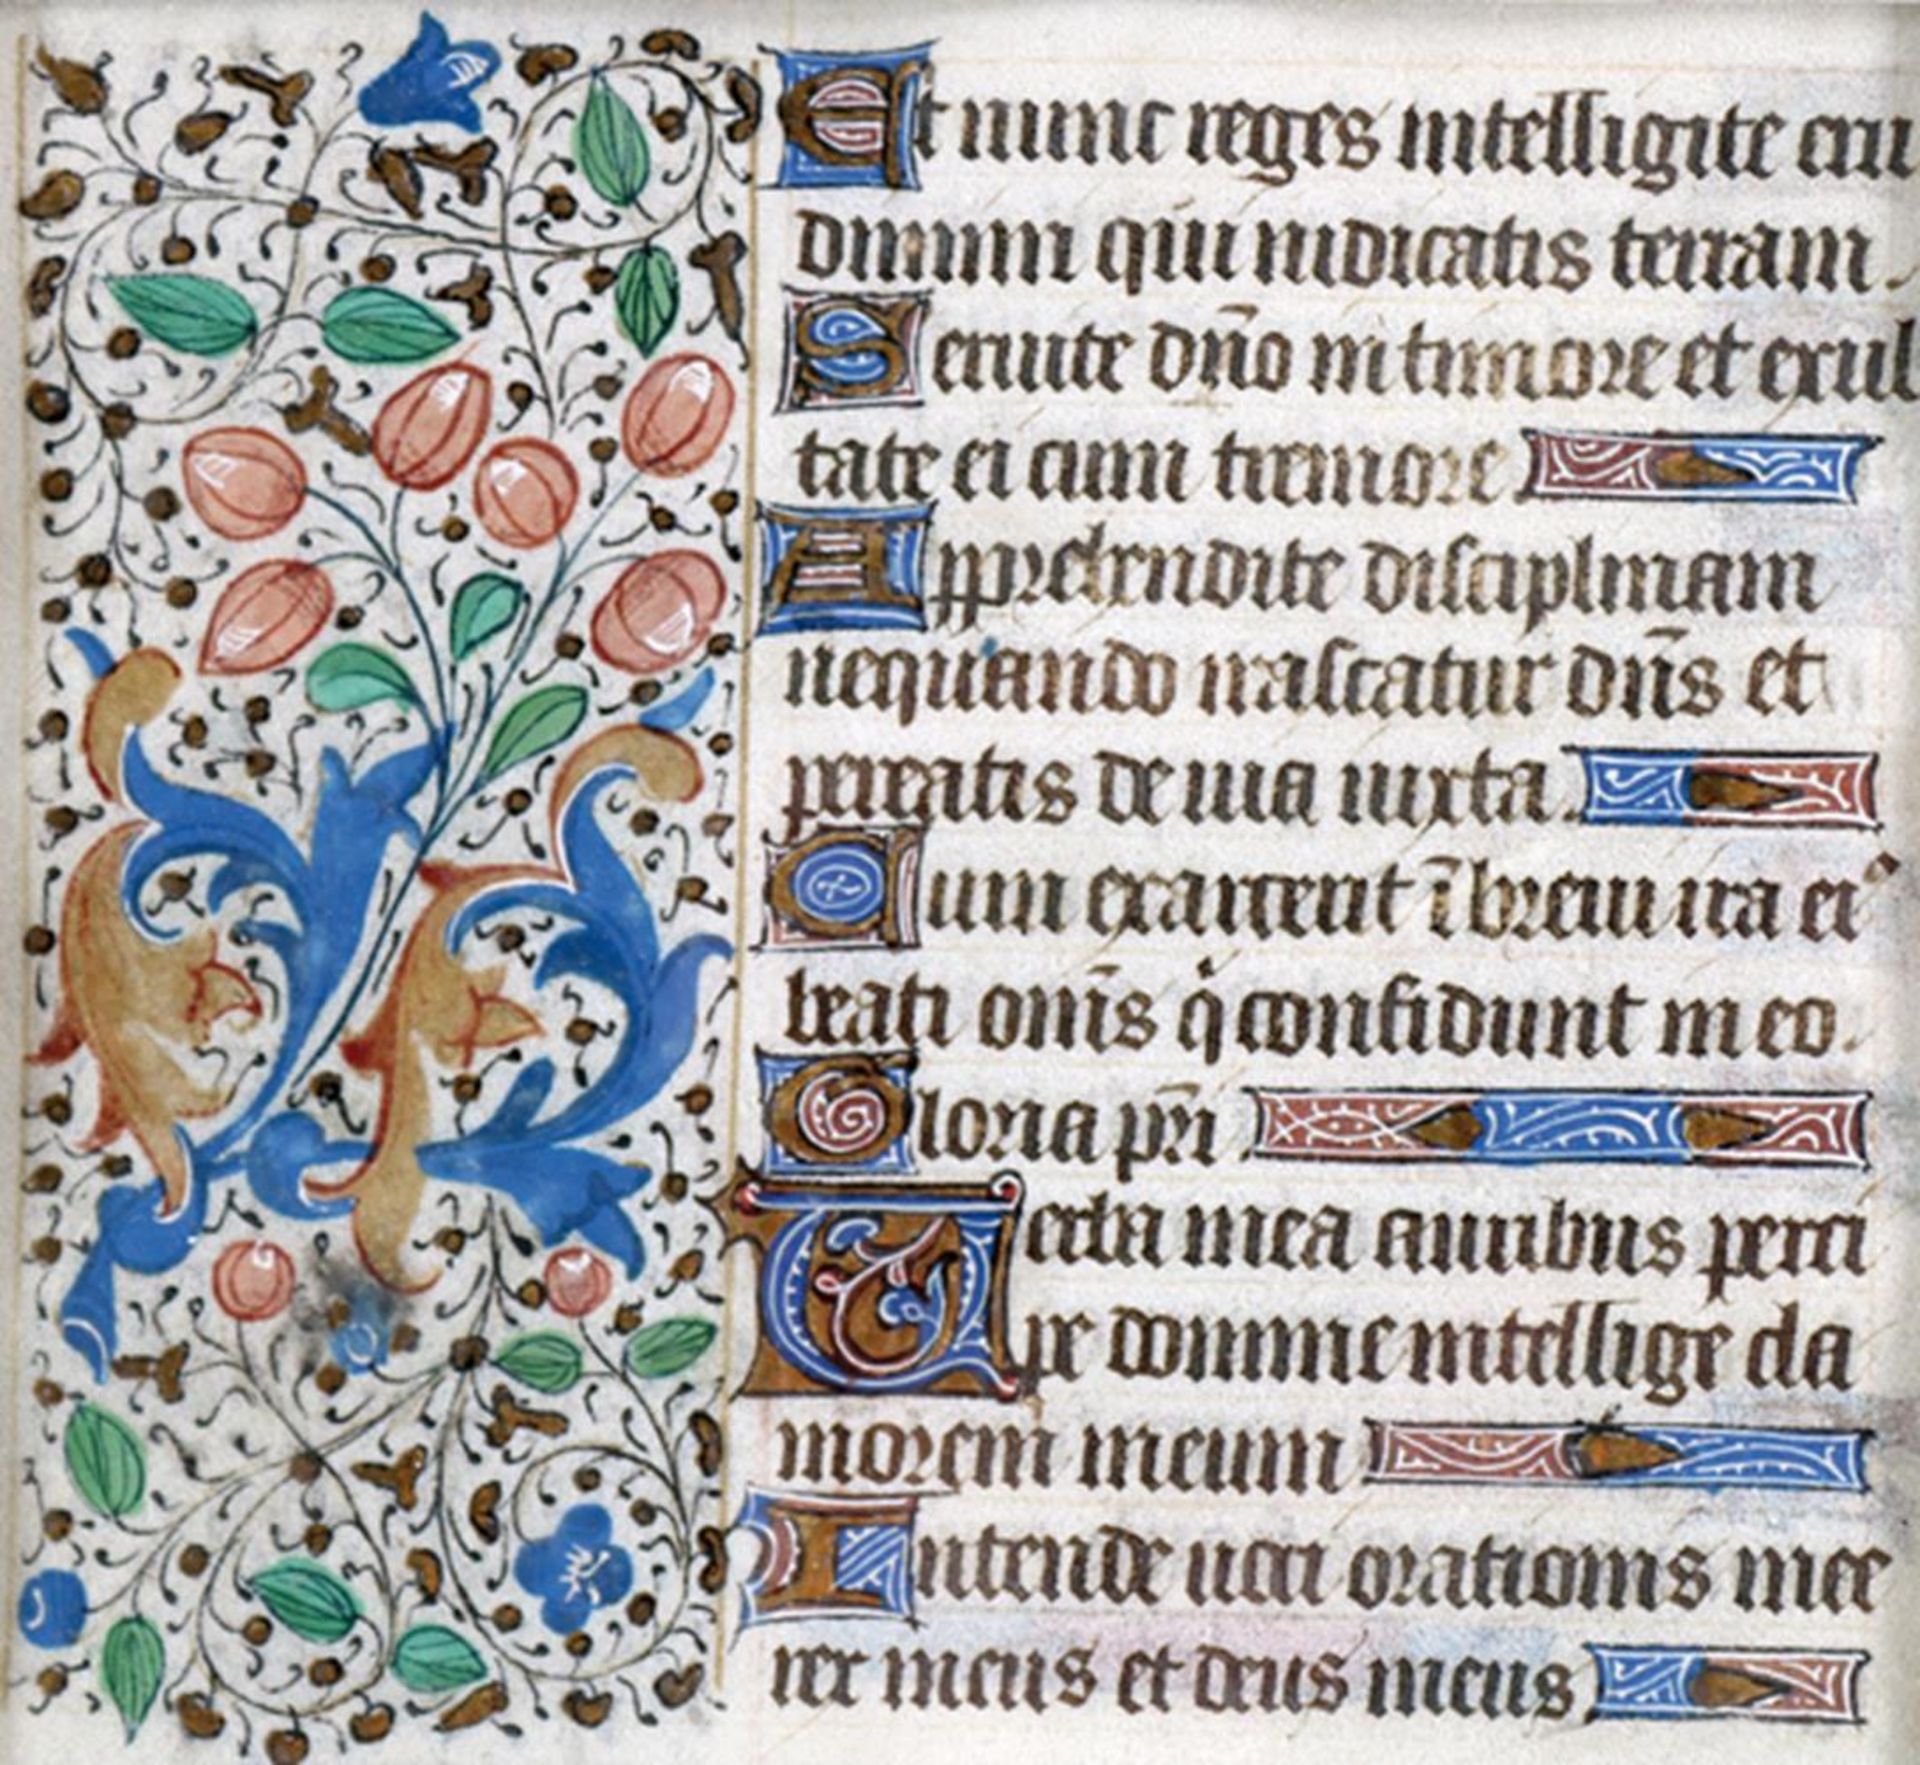 Et nunc reges intelligite eru
dimini qui iudicatis terram.
Seruite dño in timore et exul
tate ei cum tremore
Apprehendite disciplinam
nequando irascatur dñs et
pereatis de uia iuxta.
Cum exarcerit ī breui ira eiꝰ
beati om̄s q̇ confidunt in eo.
Gloria pr̄i
Verba mea auribus perci
pe domine intellige cla
morem meum
Intende uoci orationis mee
rex meus et deus meus